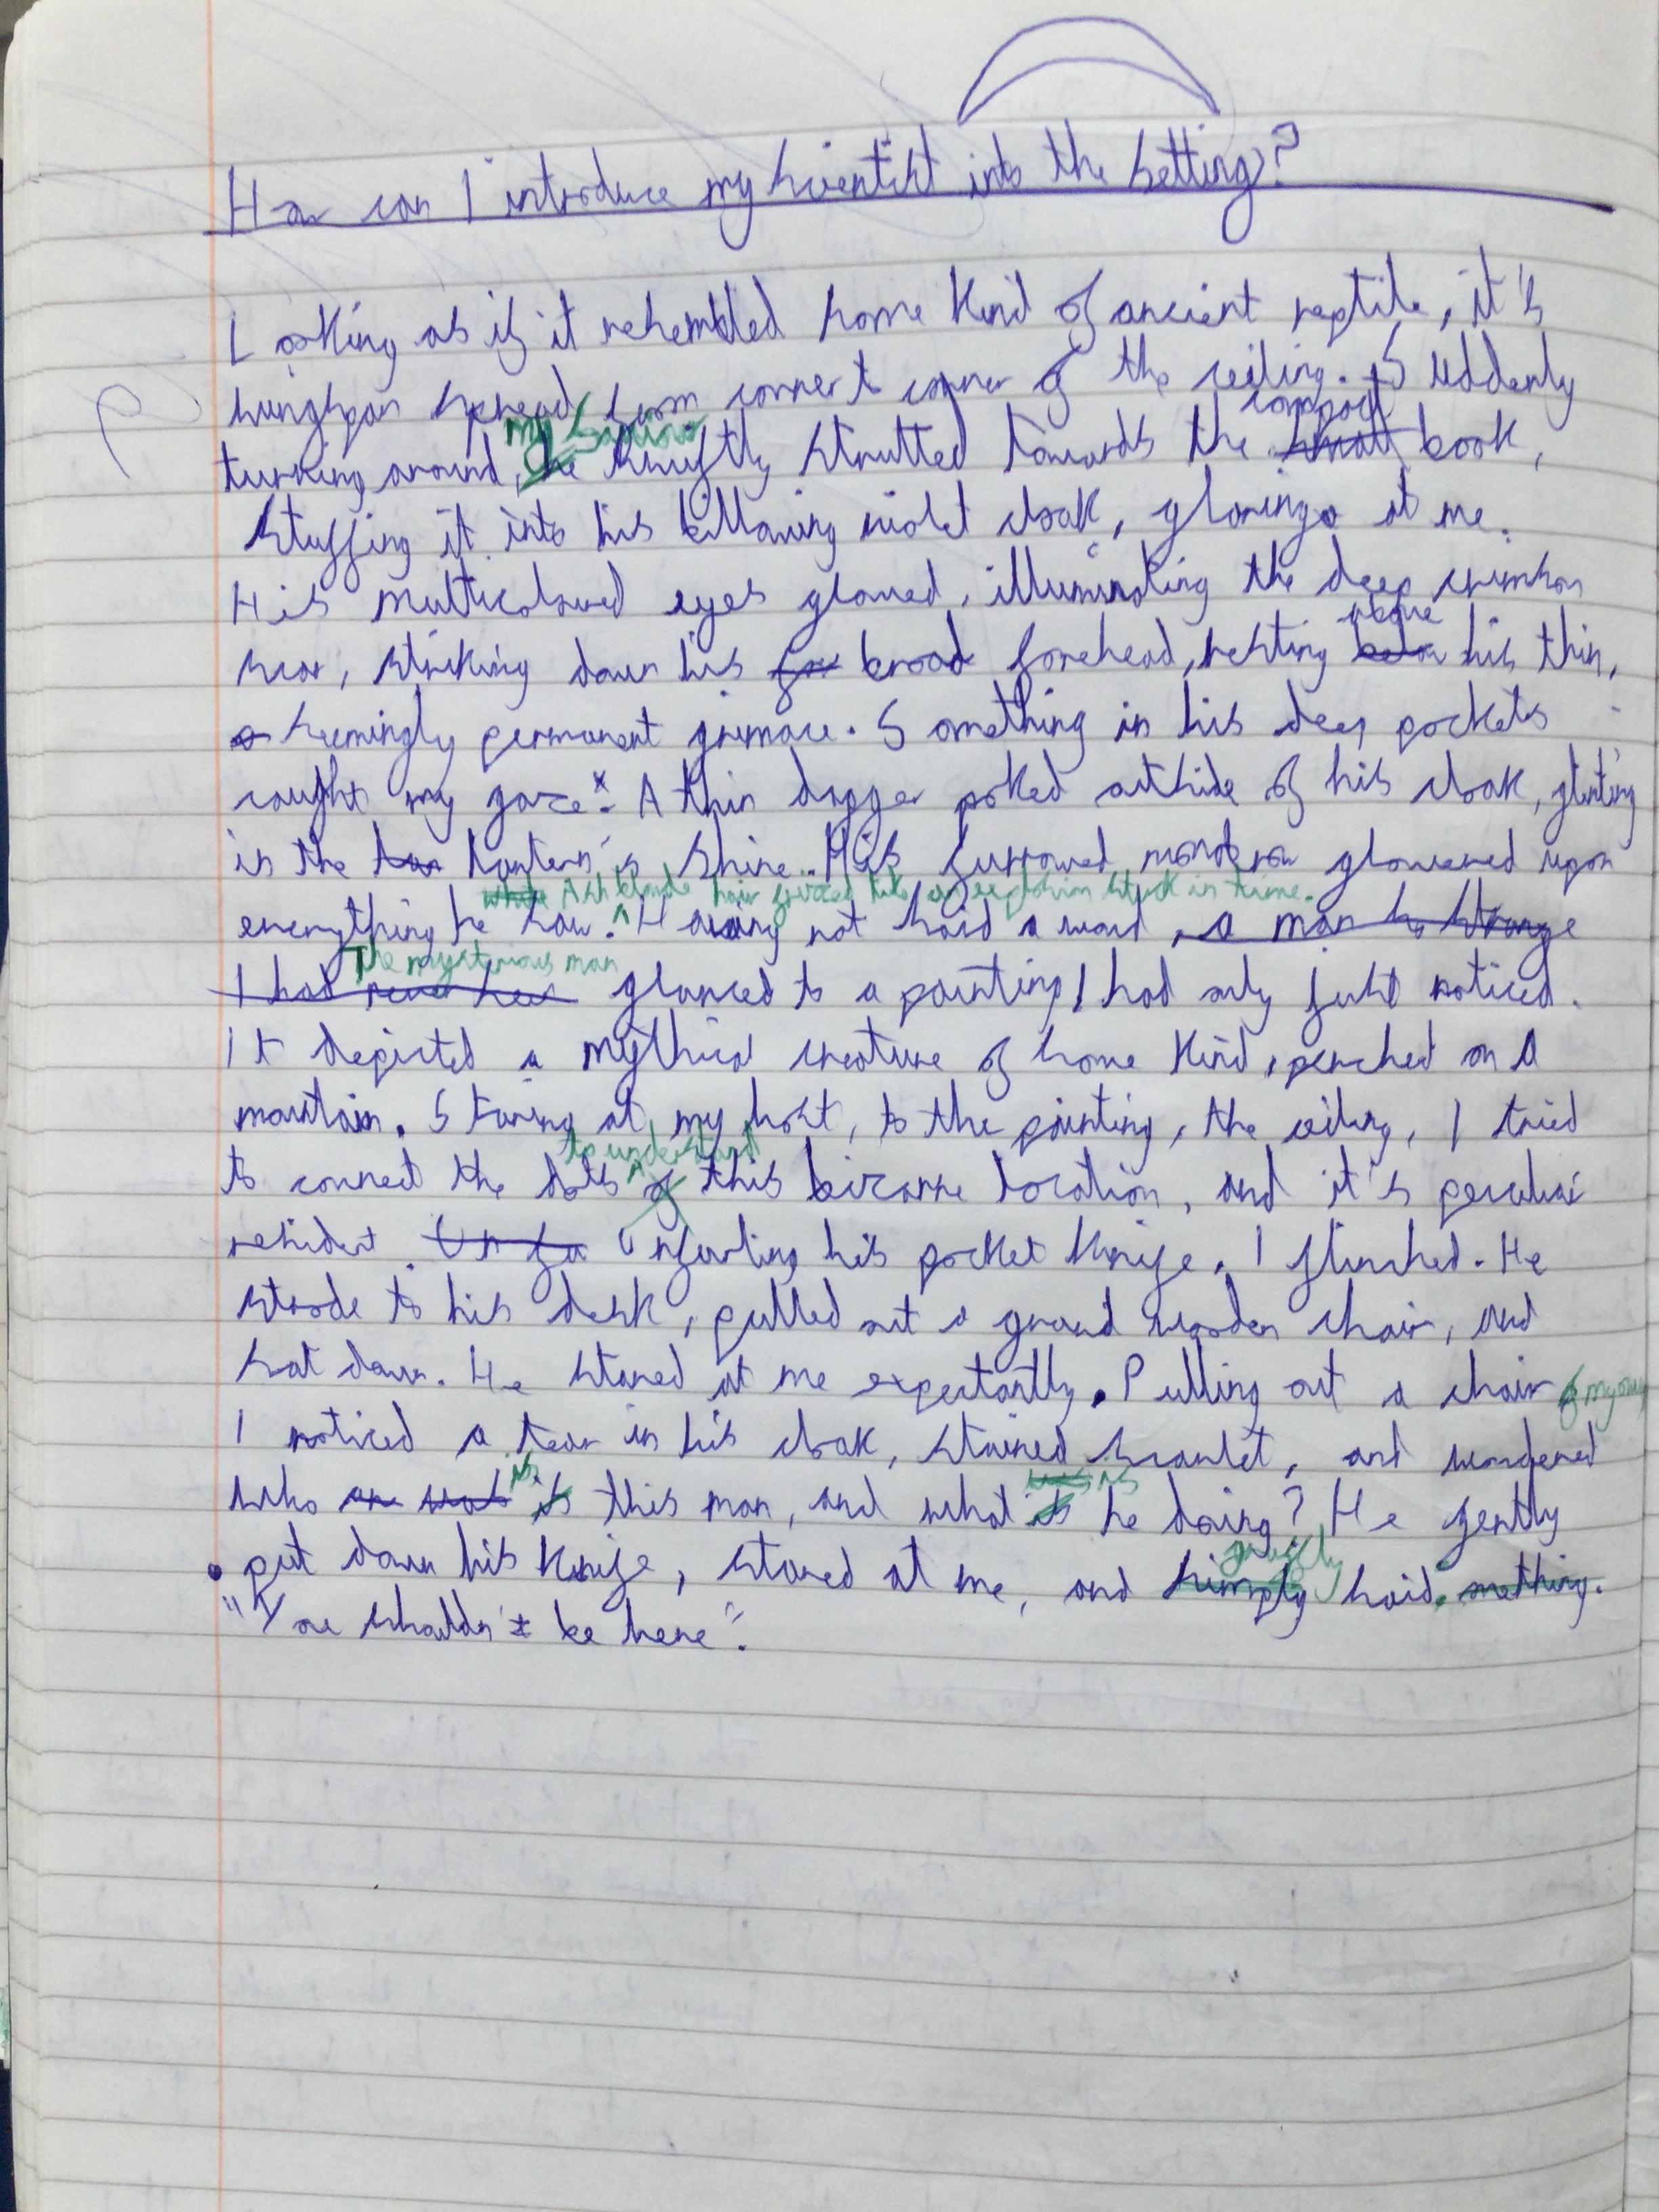 How can I introduce my scientist into the setting?
Looking as if it resembled some kind of ancient reptile, it's
wingspan spread from corner to corner of the ceiling. Suddenly
compact
my saviour
turning around, he swiftly strutted towards the small book,
stuffing it into his billowing violet cloak, glaring at me.
His multicoloured eyes glowed, illuminating the deep crimson
above
scar, striking down his for broad forehead, resting below his thin,
a seemingly permanent grimace. Something in his deep pockets
caught my gaze. A thin dagger poked outside of his cloak, glinting
in the lantern's shine. His furrowed glowered upon
white Ash blonde hair like an explosion stuck in time.
everything he saw. Having not said a word, a man so strange
The mysterious man
I had never seen glanced to a painting I had only just noticed.
It depicted a mythical creature of some kind, perched on a
mountain. Staring at my host, to the painting, the ceiling, I tried
to understand
to connect the dots of this bizarre location, and it's peculiar
resident. Unfu Unfurling his pocket knife, I flinched. He
strode to his desk, pulled out a grand wooden chair, and
sat down. He stared at me expectantly. Pulling out a chair of my own
I noticed a tear in his cloak, stained scarlet, and wondered
is was is
who was is this man, and what is he doing? He gently
gruffly
put down his knife, stared at me, and simply said something.
"You shouldn't be here".